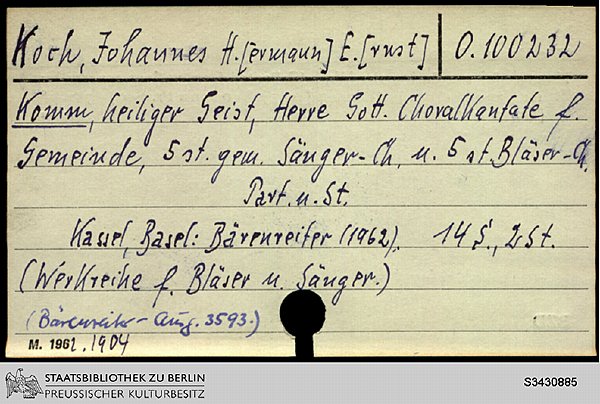 Koch, Johannes H.[ermann] E.[rnst] O.100232
Komm, heiliger Geist, Herre Gott. Choralkantate f.
Gemeinde, 5 st. gem. Sänger-Ch. u. 5 st. Bläser-Ch.
Part. u. St.
Kassel, Basel: Bärenreiter (1962). 14 S., 2 St.
(Werkreihe f. Bläser u. Sänger.)
(Bärenreiter-Ausg. 3593.)
M. 1962.1904
STAATSBIBLIOTHEK ZU BERLIN
PREUSSISCHER KULTURBESITZ
S3430885